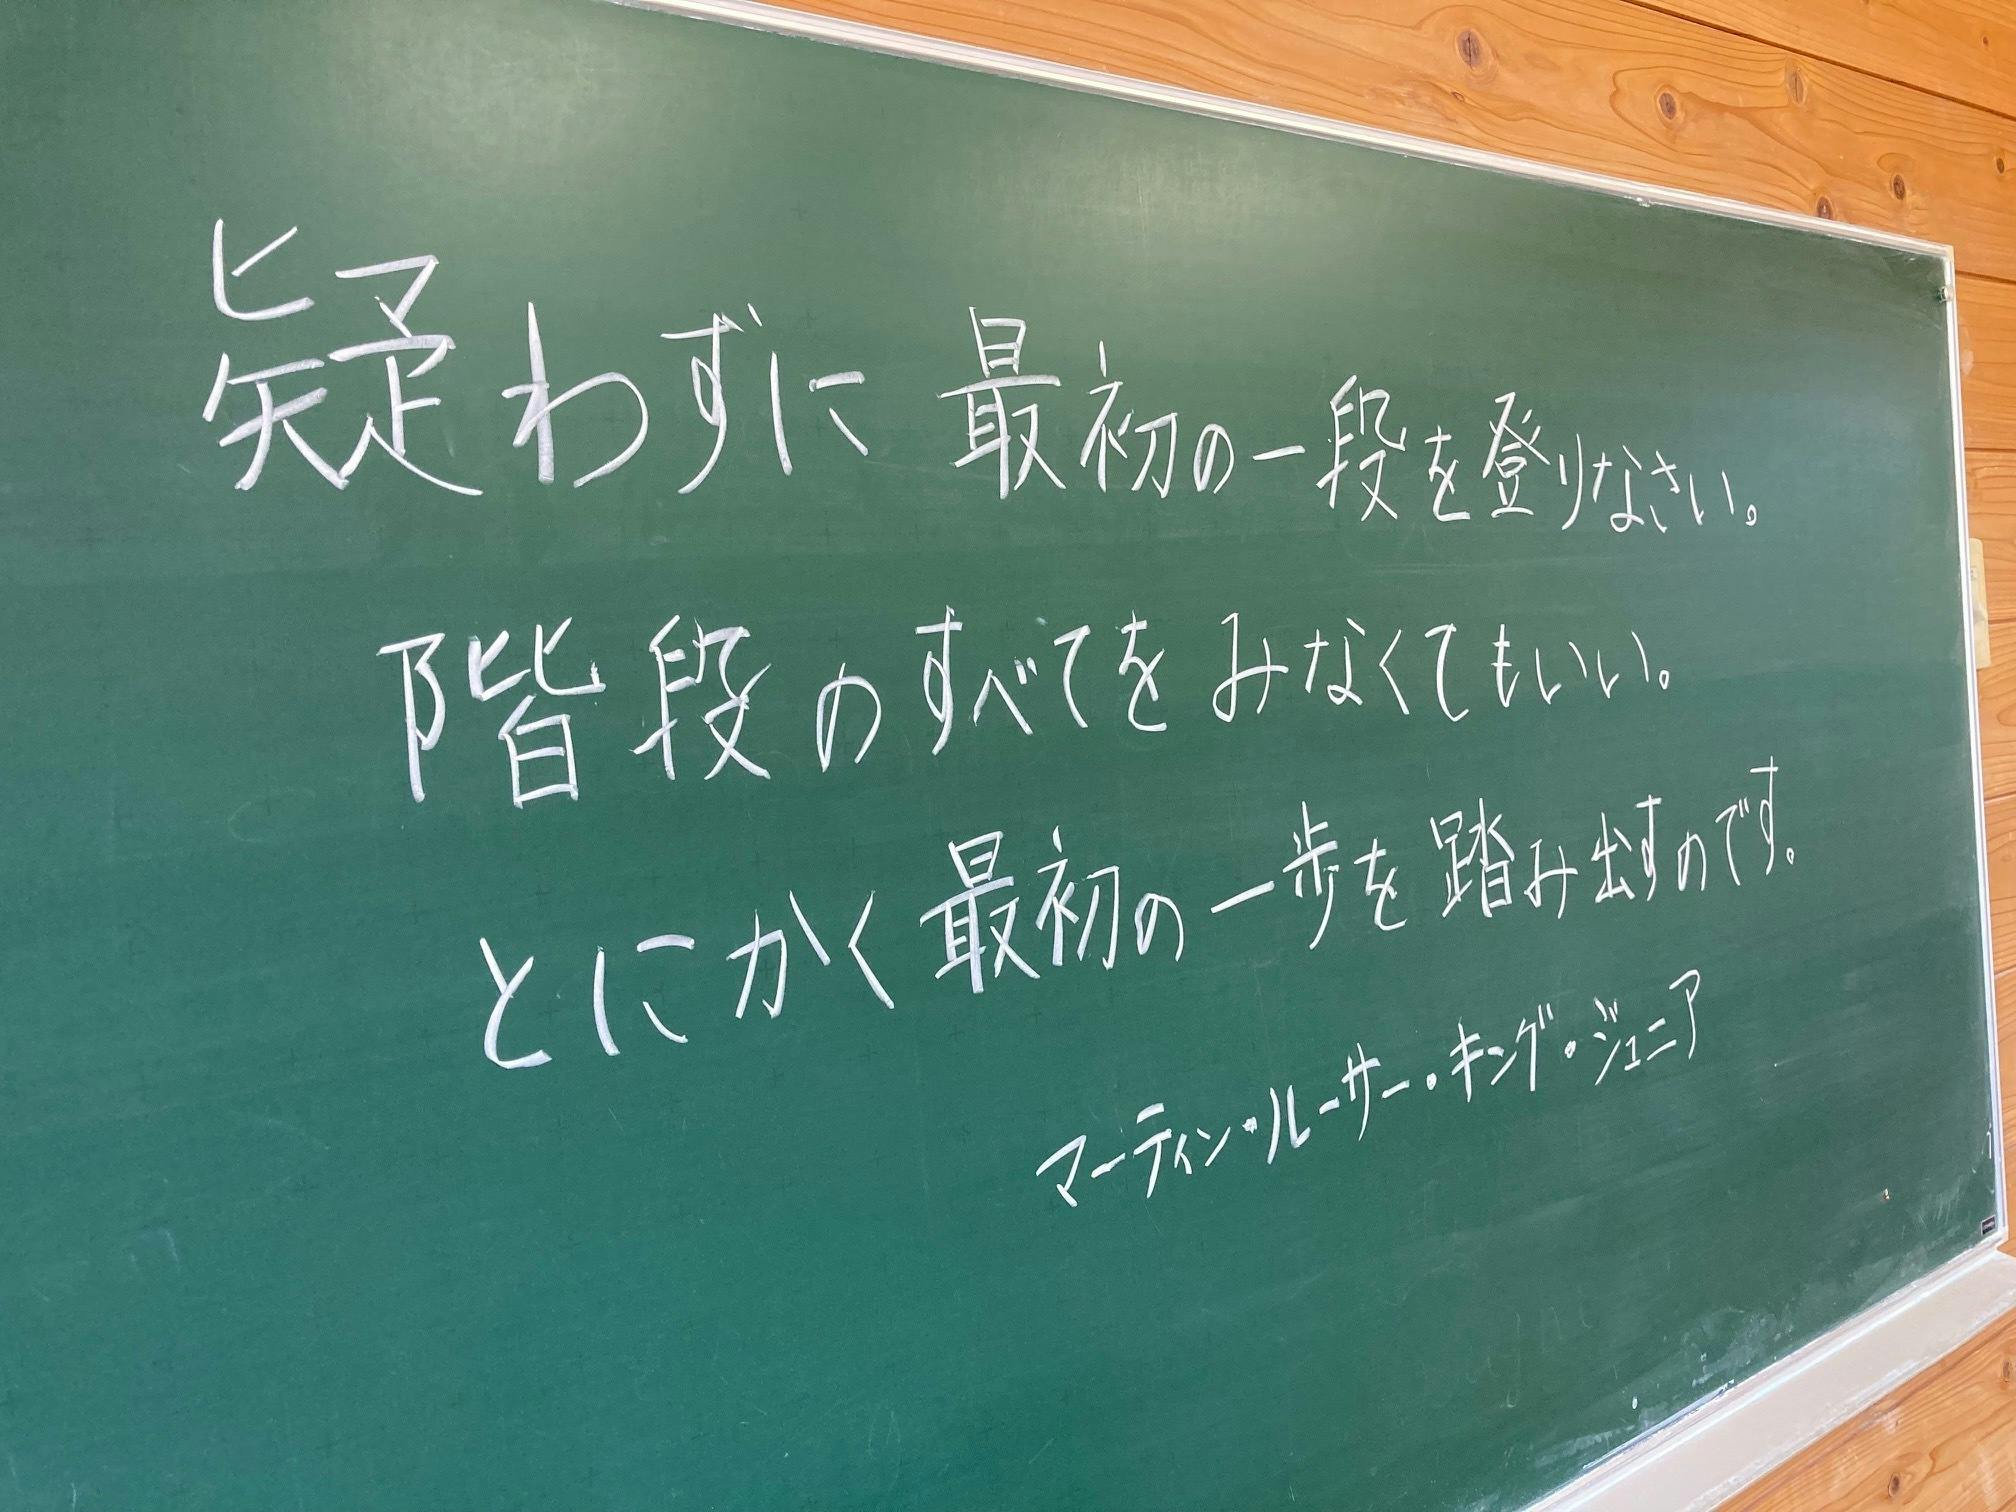 疑わずに最初の一段を登りなさい。
階段のすべてをみなくてもいい。
とにかく最初の一歩を踏み出すのです。
マーティン・ルーサー・キング・ジュニア